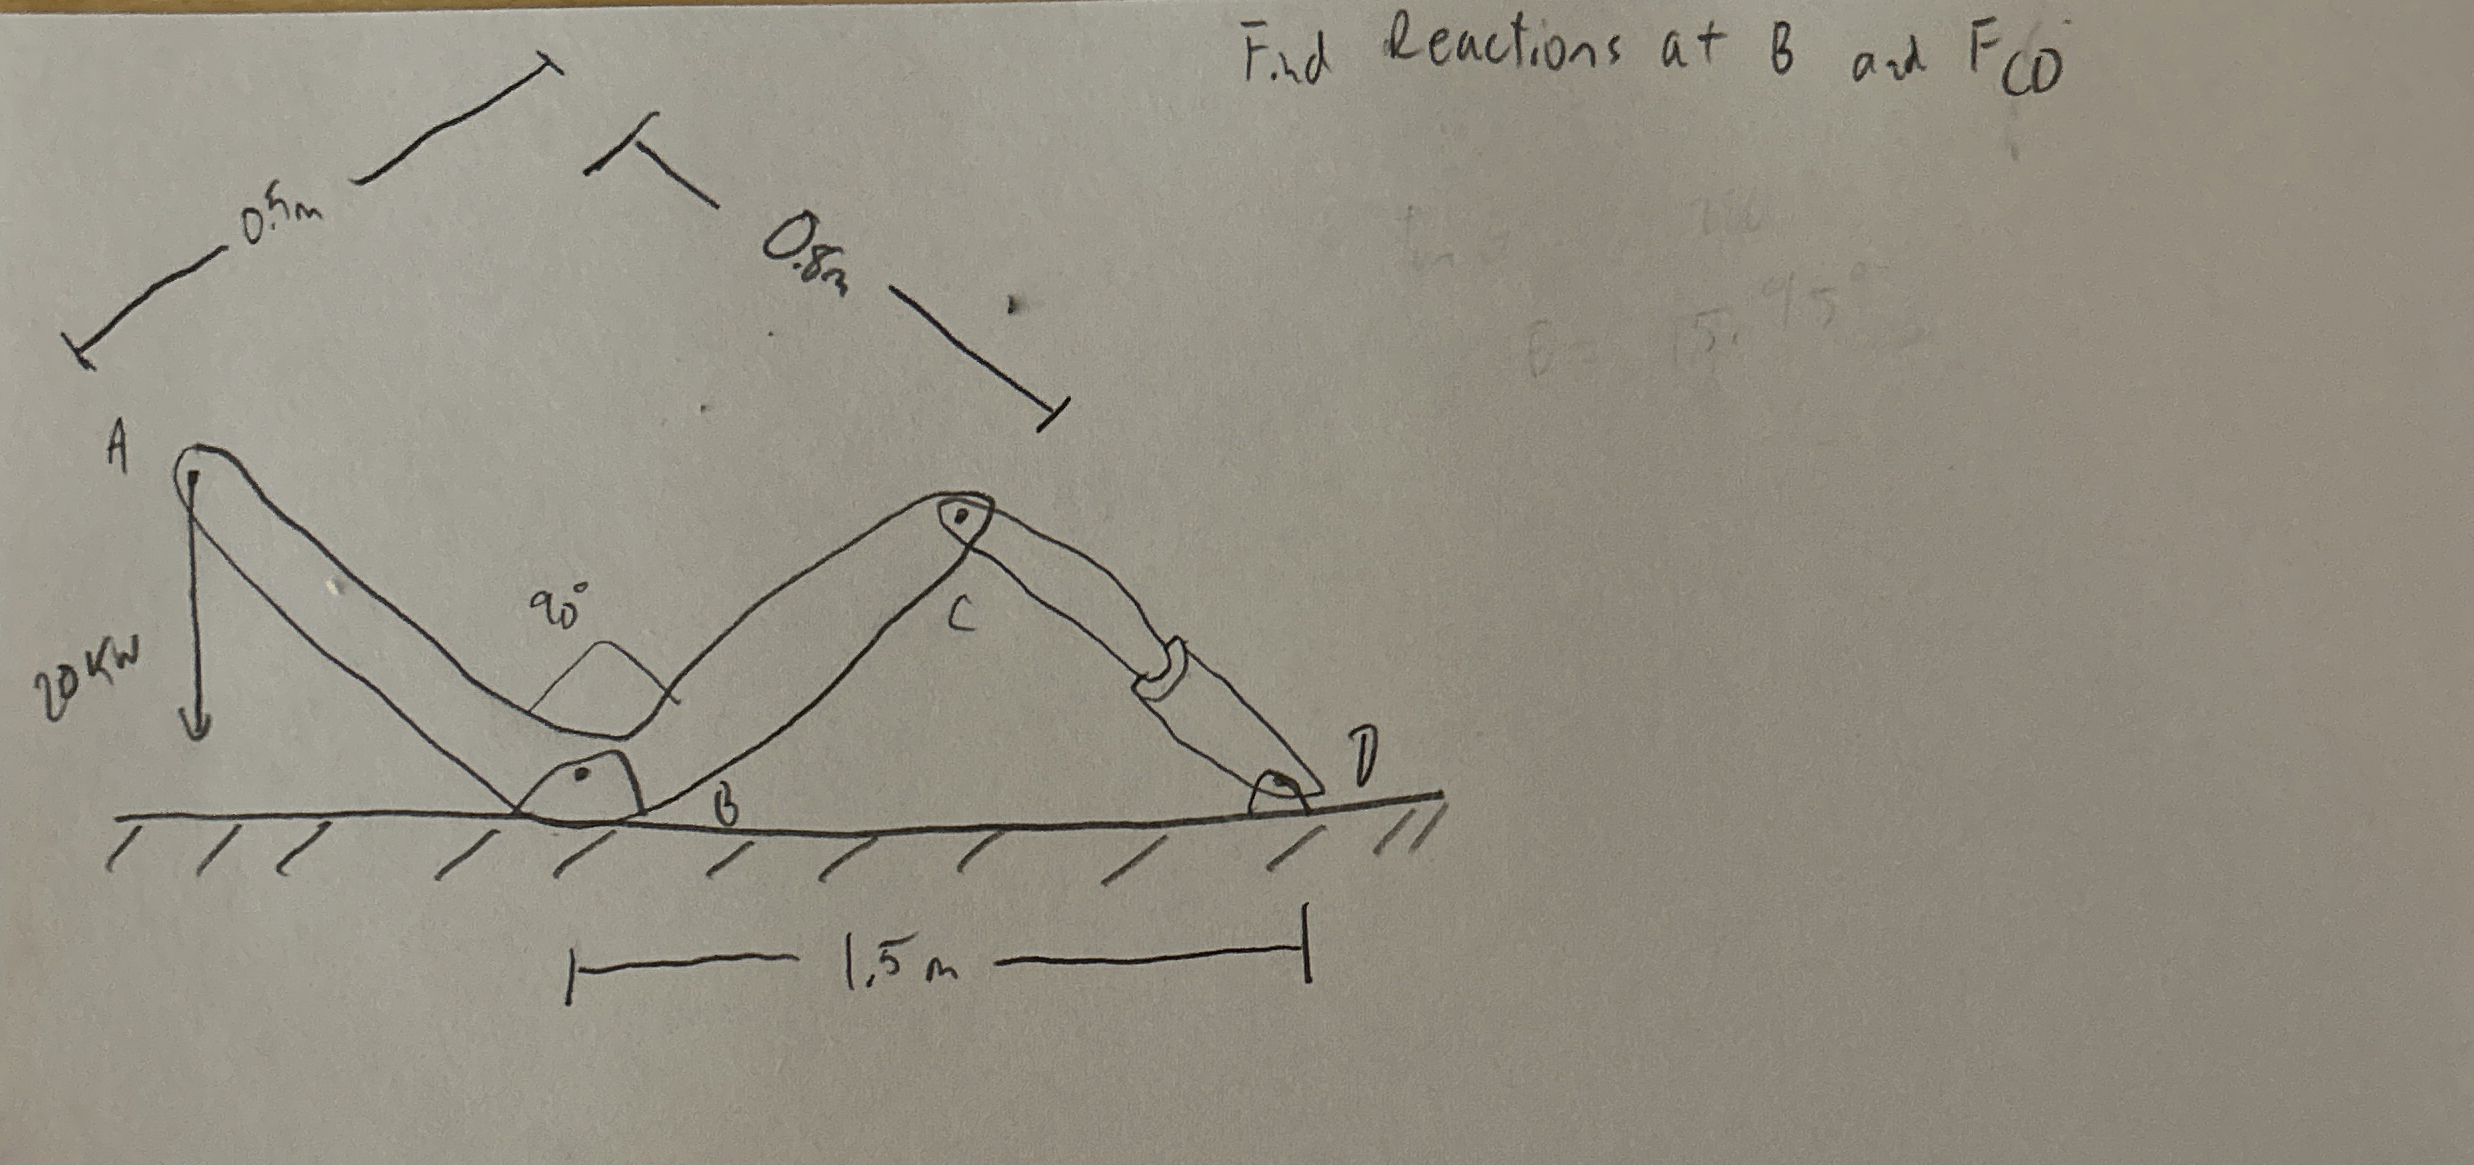 Find Reactions at B and FCD
0.5m
0.8m
A
90°
C
20 KN
B
D
1.5 m